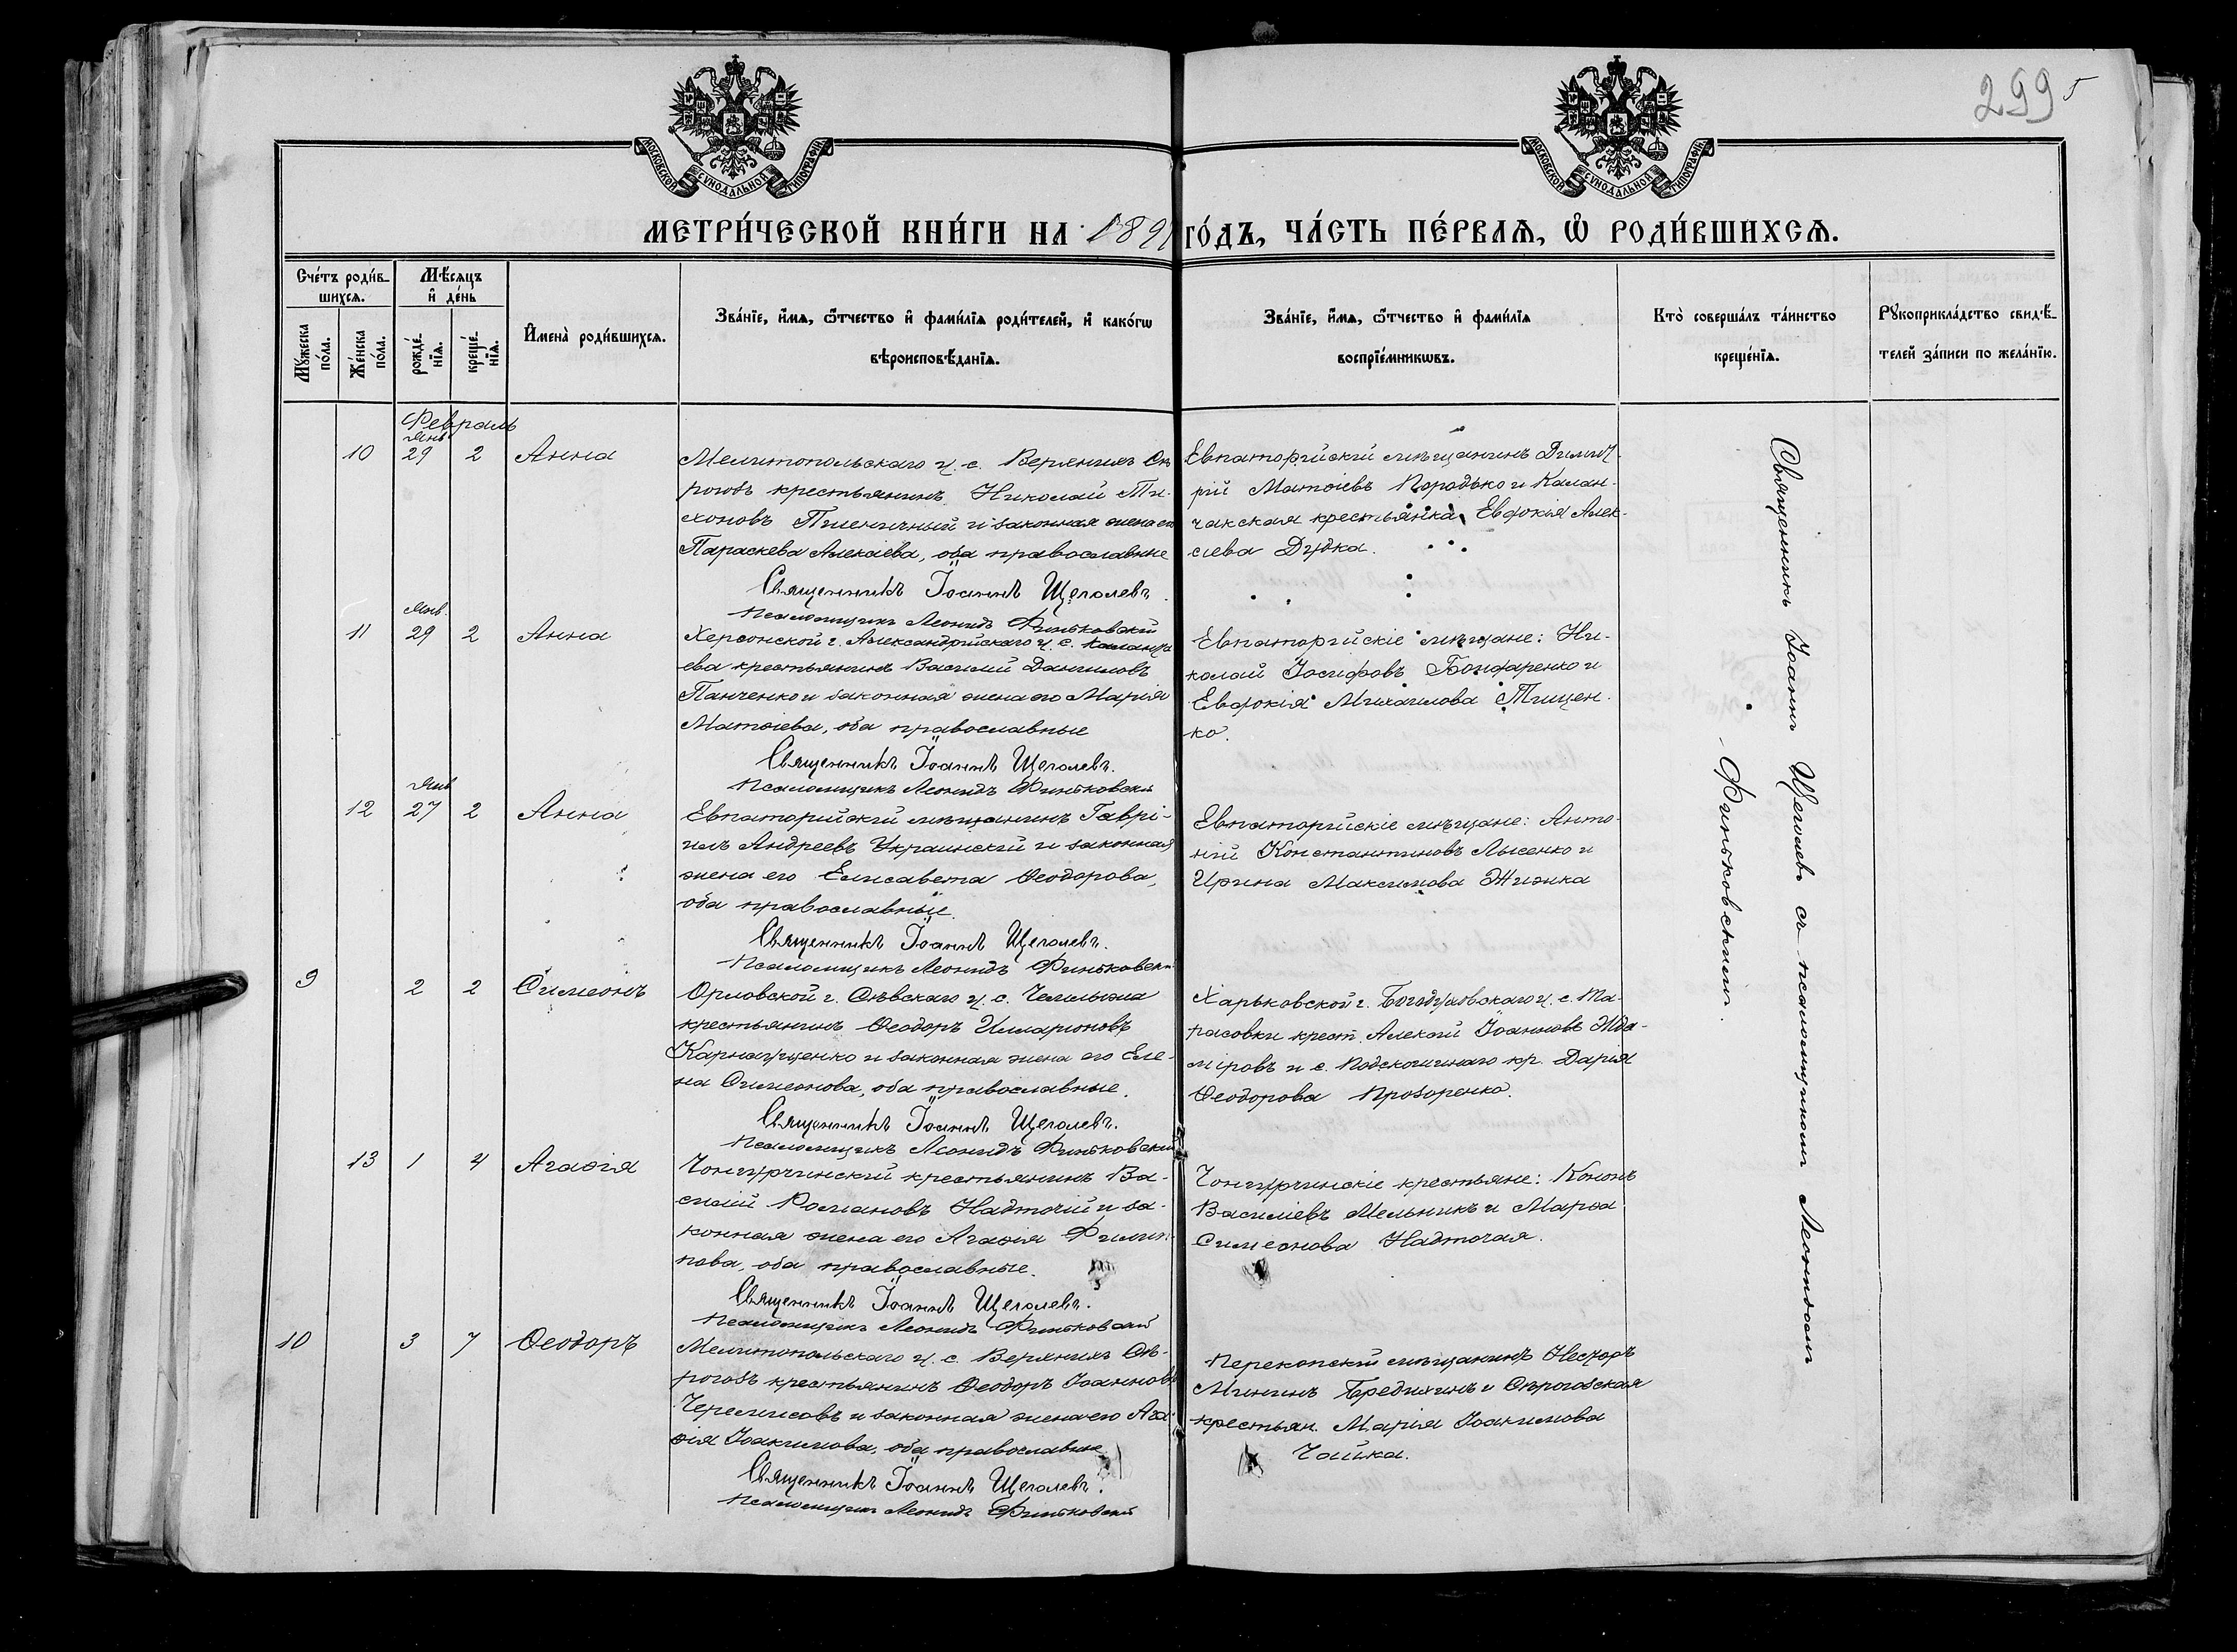 299
МОСКОВСКОЙ СѴНОДАЛЬНОЙ ТИПОГРАФІИ
МОСКОВСКОЙ СѴНОДАЛЬНОЙ ТИПОГРАФІИ
МЕТРИ́ЧЕСКОЙ КНИ́ГИ НА 1891 ГО́ДЪ, ЧА́СТЬ ПЕ́РВАѦ, Ѡ҆ РОДИ́ВШИХСѦ.
Сче́тъ роди́в-
шихсѧ.
Мꙋжеска по́ла.
Же́нска по́ла.
Мѣ́сѧцъ
и҆ де́нь
рожде́-нїѧ.
креще́-нїѧ.
И҆мена̀ роди́вшихсѧ.
Зва́нїе, и҆́мѧ, ѻ҆́тчество и҆ фами́лїѧ роди́телей, и҆ како́гѡ
вѣроисповѣ́данїѧ.
Зва́нїе, и҆́мѧ, ѻ҆́тчество и҆ фами́лїѧ
воспрїе́мникѡвъ.
Кто̀ соверша́лъ та́инство
креще́нїѧ.
Рꙋкоприкла́дство свидѣ́-
телей за́писи по жела́нїю.
Февраль
Янв.
10 29 2 Анна
Мелитопольскаго у. с. Верхнихъ Сѣ-
рогозъ крестьянинъ Николай Ти-
хоновъ Пшеничный и законная жена его
Параскева Алексіева, оба православные
Священникъ Іоаннъ Щеголевъ.
Псаломщикъ Леонидъ Финьковскій
Евпаторійскій мѣщанинъ Димит-
рій Матѳіевъ Породько и Калан-
чакская крестьянка Евдокія Алек-
сіева Дудка.
Янв.
11 29 2 Анна
Херсонской г. Александрійскаго у. с.
ева крестьянинъ Василий Даниловъ
Панченко и законная жена его Марія
Матѳіева, оба православные
Священникъ Іоаннъ Щеголевъ.
Псаломщикъ Леонидъ Финьковскій
Евпаторійскіе мѣщане: Ни-
колай Іосифовъ Бондаренко и
Евдокія Михаилова Тищен-
ко.
Янв
12 27 2 Анна
Евпаторійскій мѣщанинъ Гаврі-
илъ Андреевъ Украинскій и законная
жена его Елисавета Ѳеодорова,
оба православные.
Священникъ Іоаннъ Щеголевъ.
Псаломщикъ Леонидъ Финьковскій
Евпаторійскіе мѣщане: Анто-
ній Константиновъ Лысенко и
Ирина Максимова Жижка
9 2 2 Симеонъ
Орловской г. Сѣвскаго у. с.
крестьянинъ Ѳеодоръ Илларіоновъ
Карнаущенко и законная жена его Еле-
на Симеонова, оба православные.
Священникъ Іоаннъ Щеголевъ.
Псаломщикъ Леонидъ Финьковскій
Харьковской г. Богодуховскаго у. с. Та-
расовки крест. Алексій Іоанновъ
и с. кр. Дарія
Ѳеодорова Прозоренко.
13 1 4 Агаѳія
Чонгурчинскій крестьянинъ Ва-
силій Романовъ Надточій и за-
конная жена его Агаѳія Филип-
пова, оба православные.
Священникъ Іоаннъ Щеголевъ.
Псаломщикъ Леонидъ Финьковскій
Чонгурчинскіе крестьяне: Кононъ
Василіевъ Мельникъ и Марѳа
Симеонова Надточая.
10 3 7 Ѳеодоръ
Мелитопольскаго у. с. Верхнихъ Сѣ-
рогозъ крестьянинъ Ѳеодоръ Іоанновъ
Черемисовъ и законная жена его Ага-
ѳія Іоакимова, оба православные
Священникъ Іоаннъ Щеголевъ.
Псаломщикъ Леонидъ Финьковскій
Перекопскій мѣщанинъ Несторъ
Мининъ Бредихинъ и Сѣрогозская
крестьян. Марія Іоакимова
Чайка.
Священникъ Іоаннъ Щеголевъ съ псаломщикомъ Леонидомъ
Финьковскимъ.